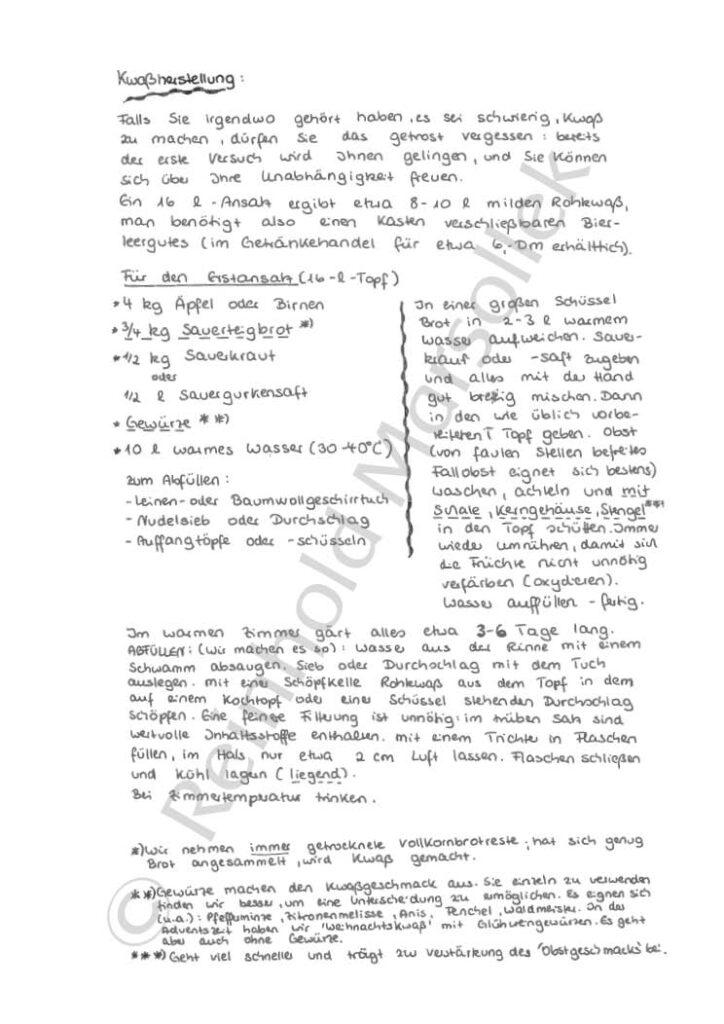 Kwaßherstellung:
Falls Sie irgendwo gehört haben, es sei schwierig, Kwaß
zu machen, dürfen Sie das getrost vergessen: bereits
der erste Versuch wird Ihnen gelingen, und Sie können
sich über Ihre Unabhängigkeit freuen.
Ein 16 l - Ansatz ergibt etwa 8-10 l milden Rohkwaß,
man benötigt also einen Kasten verschließbaren Bier-
leergutes (im Getränkehandel für etwa 6,- Dm erhältlich).
Für den Erstansatz (16-l-Topf)
* 4 kg Äpfel oder Birnen
* 3/4 kg Sauerteigbrot *)
* 1/2 kg Sauerkraut
oder
1/2 l Sauergurkensaft
* Gewürze **)
* 10 l warmes Wasser (30-40°C)
zum Abfüllen:
- Leinen- oder Baumwollgeschirrtuch
- Nudelsieb oder Durchschlag
- Auffangtöpfe oder -schüsseln
In einer großen Schüssel
Brot in 2-3 l warmem
Wasser aufweichen. Sauer-
kraut oder -saft zugeben
und alles mit der Hand
gut breiig mischen. Dann
in den wie üblich vorbe-
reiteten Topf geben. Obst
(von faulen Stellen befreites
Fallobst eignet sich bestens)
waschen, achteln und mit
Schale, Kerngehäuse, Stengel ***)
in den Topf schütten. Immer
wieder umrühren, damit sich
die Früchte nicht unnötig
verfärben (oxydieren).
Wasser auffüllen - fertig.
Im warmen Zimmer gärt alles etwa 3-6 Tage lang.
ABFÜLLEN: (Wir machen es so): Wasser aus der Rinne mit einem
Schwamm absaugen. Sieb oder Durchschlag mit dem Tuch
auslegen. mit eine Schöpfkelle Rohkwaß aus dem Topf in dem
auf einem Kochtopf oder einer Schüssel stehenden Durchschlag
schöpfen. Eine feinere Filterung ist unnötig: im trüben Satz sind
wertvolle Inhaltsstoffe enthalten. mit einem Trichter in Flaschen
füllen, im Hals nur etwa 2 cm Luft lassen. Flaschen schließen
und kühl lagern (liegend).
Bei Zimmertemperatur trinken.
*) Wir nehmen immer getrocknete Vollkornbrotreste; hat sich genug
Brot angesammelt, wird Kwaß gemacht.
**) Gewürze machen den Kwaßgeschmack aus. Sie einzeln zu verwenden
finden wir besser, um eine Unterscheidung zu ermöglichen. Es eignen sich
(u.a.): Pfefferminze, Zitronenmelisse, Anis, Fenchel, Waldmeister. In der
Adventszeit haben wir 'Weihnachtskwaß' mit Glühweingewürzen. Es geht
aber auch ohne Gewürze.
***) Geht viel schneller und trägt zur Verstärkung des 'Obstgeschmacks' bei.
© Reinhold Marsollek